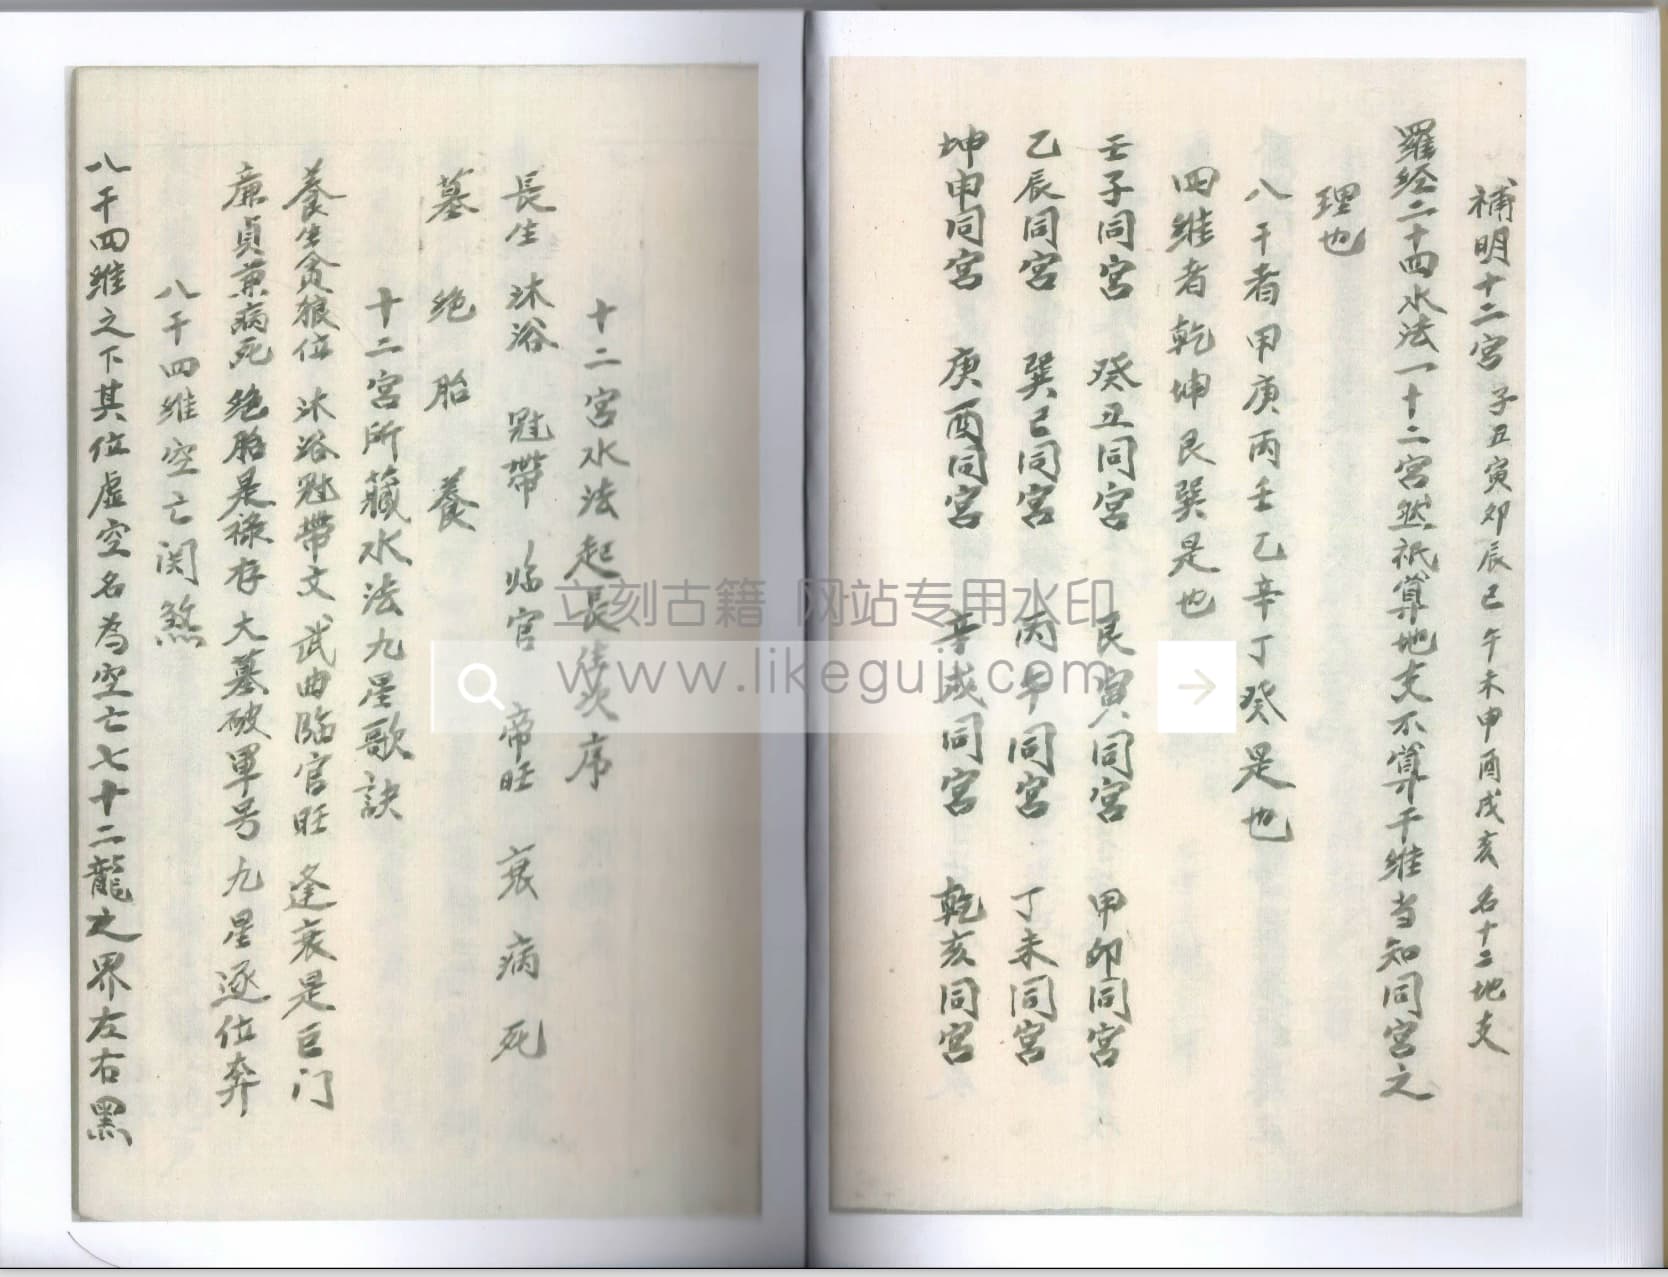 補明十二宮 子丑寅卯辰巳午未申酉戌亥名十二地支
羅经二十四水法一十二宮然祇算地支不算干维当知同宮之
理也
八干者甲庚丙壬乙辛丁癸是也
四维者乾坤艮巽是也
壬子同宮 癸丑同宮 艮寅同宮 甲卯同宮
乙辰同宮 巽巳同宮 丙午同宮 丁未同宮
坤申同宮 庚酉同宮 辛戌同宮 乾亥同宮
十二宮水法起長生次序
長生 沐浴 冠帶 临官 帝旺 衰 病 死
墓 绝 胎 養
十二宮所藏水法九星歌訣
養生贪狼位 沐浴冠帶文 武曲臨官旺 逢衰是巨门
廉貞兼病死 绝胎是祿存 大墓破軍号 九星逐位奔
八干四维空亡関煞
八干四维之下其位虛空名為空亡七十二龍之界左右黑
立刻古籍 网站专用水印
www.likeguji.com